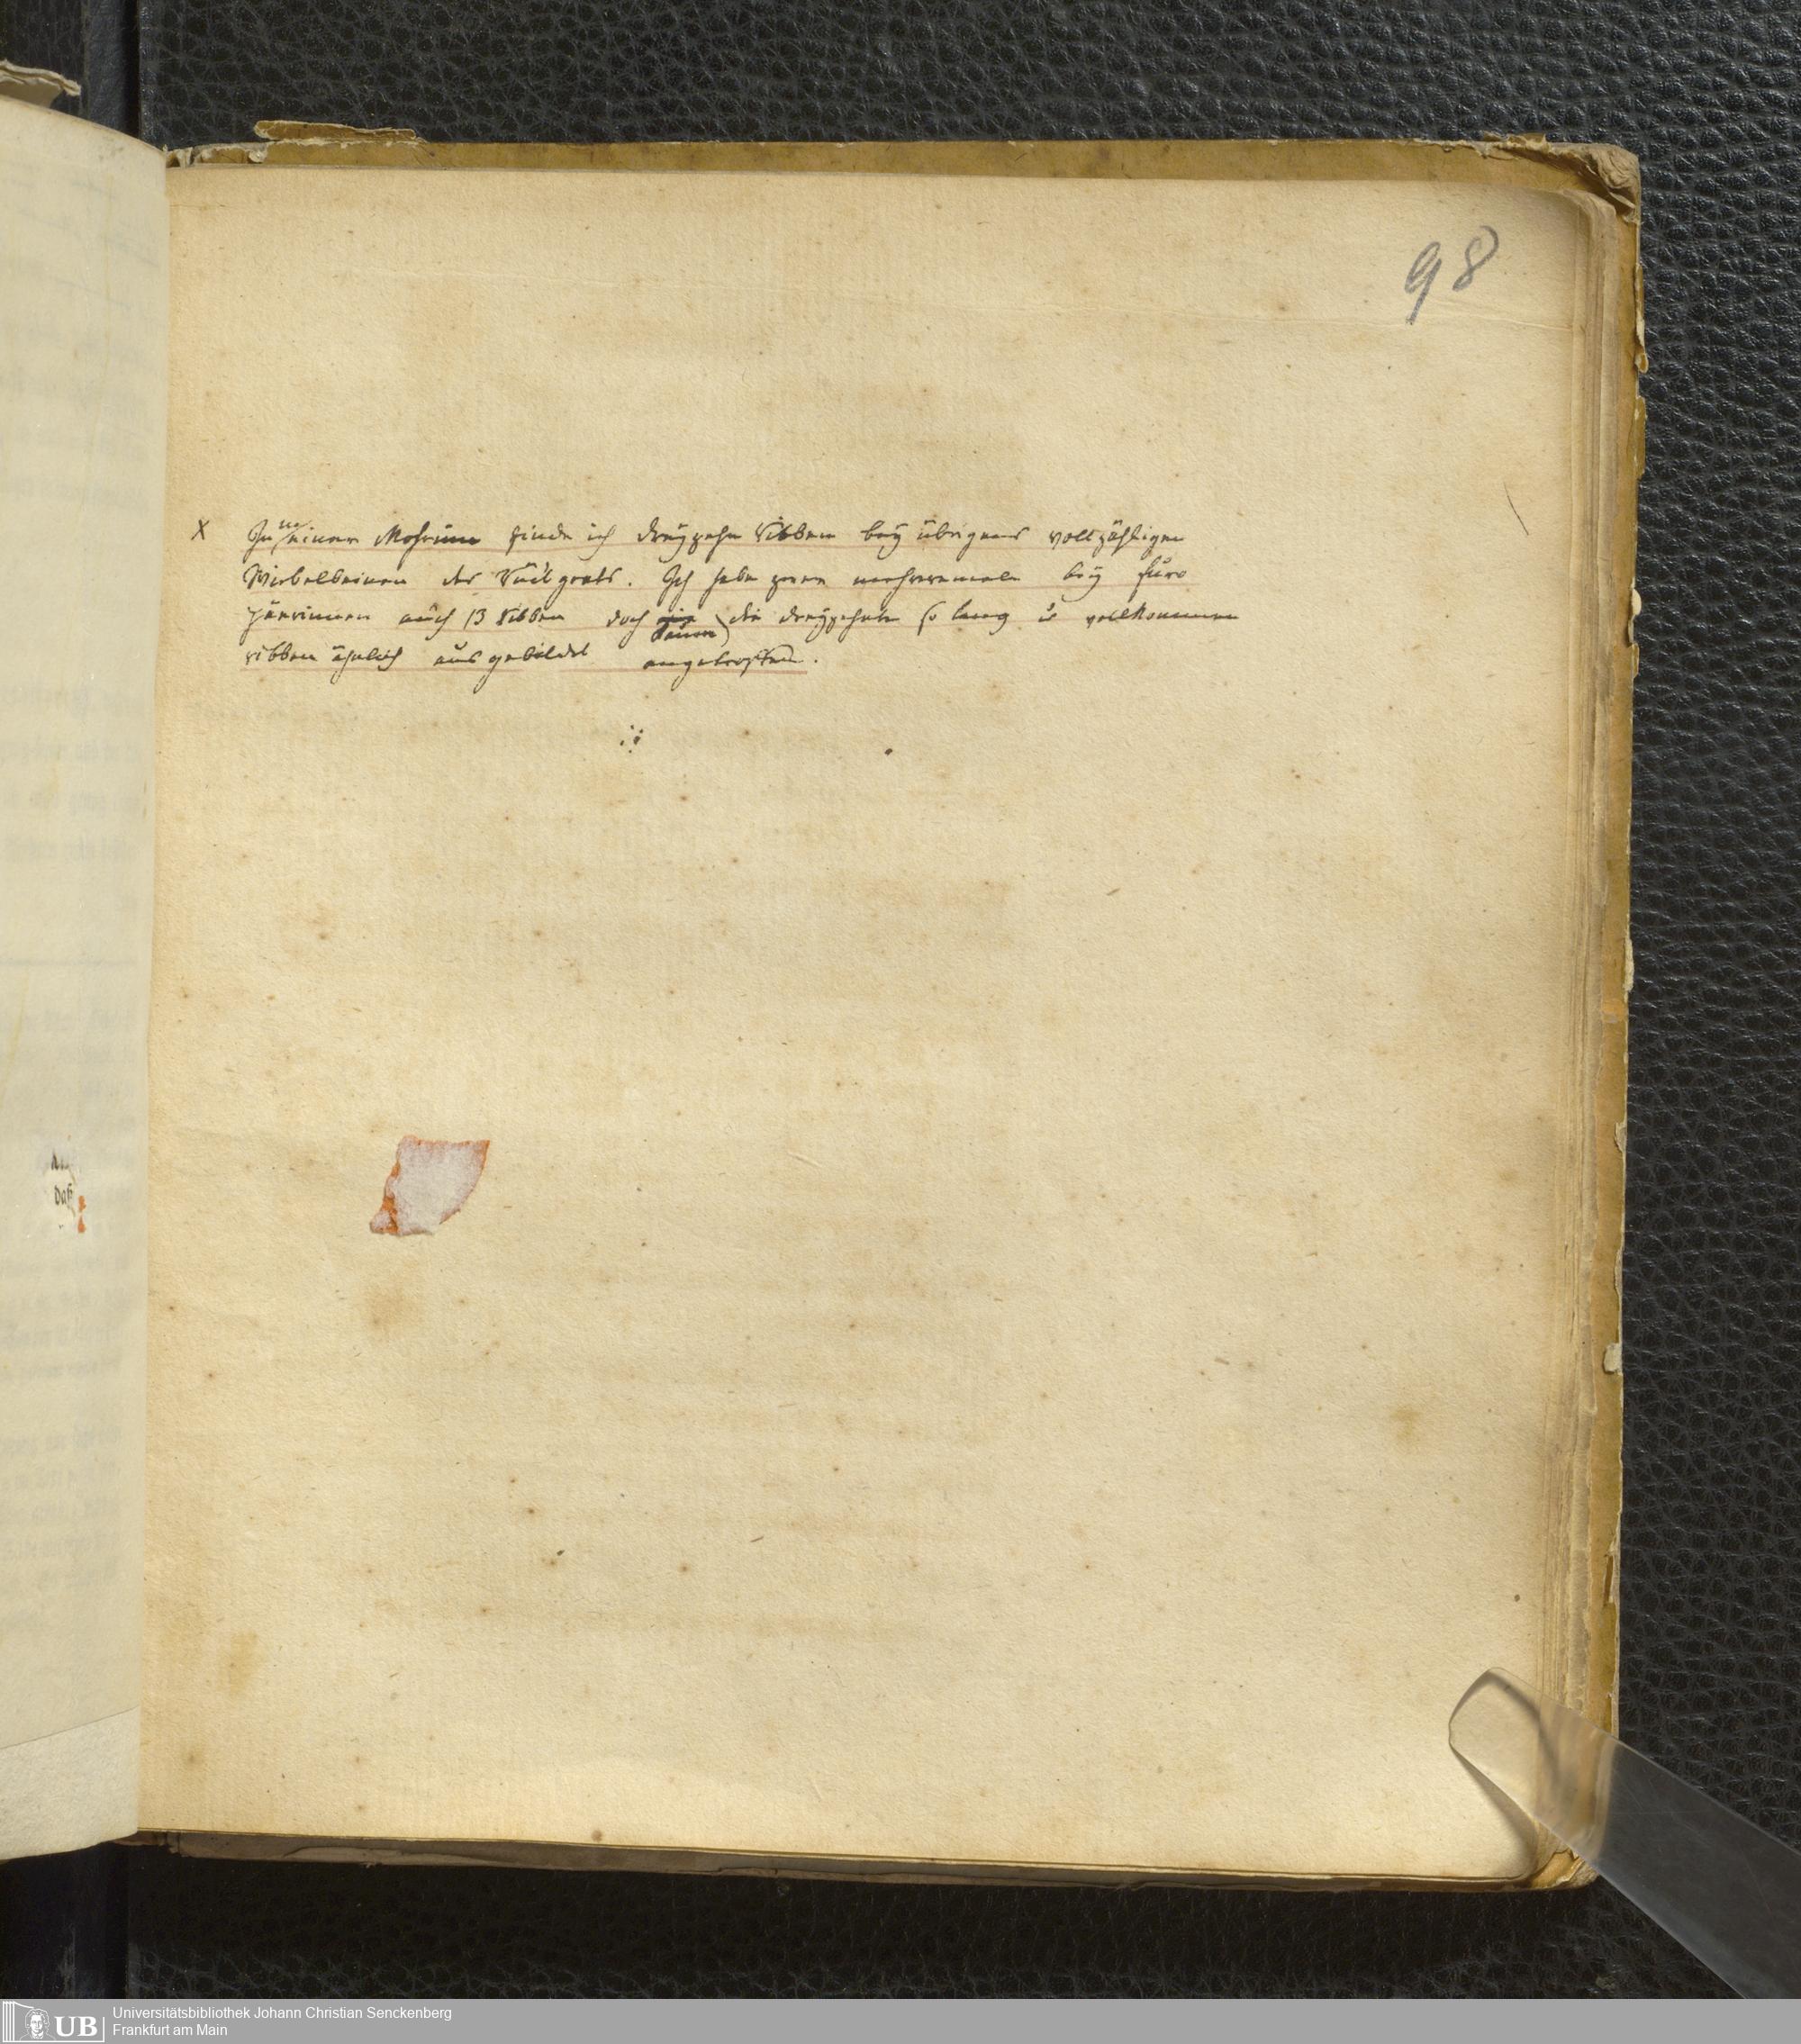 98
x In einer Mohrinn finde ich dreyzehn Ribben bey übrigens vollzähligen
Wirbelbeinen des Rückgrats. Ich habe zwar mehreremale bey Euro
päerinnen auch 13 Ribben doch die dreyzehnte so lang u vollkommen
ribben ähnlich ausgebildet angetroffen.
daß
UB
Universitätsbibliothek Johann Christian Senckenberg
Frankfurt am Main